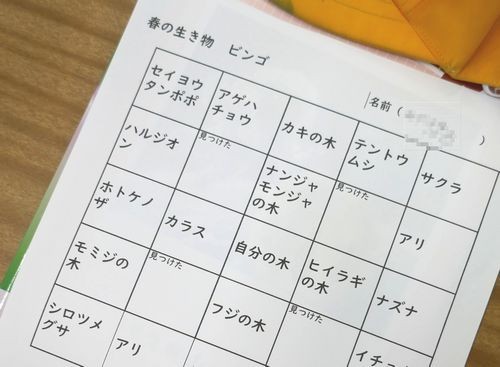 春の生き物 ビンゴ
名前( )
セイヨウ
タンポポ
アゲハ
チョウ
カキの木
テントウ
ムシ
サクラ
ハルジオ
ン
見つけた
ナンジャ
モンジャ
の木
見つけた
アリ
ホトケノ
ザ
カラス
自分の木
ヒイラギ
の木
ナズナ
モミジの
木
見つけた
フジの木
見つけた
シロツメ
グサ
アリ